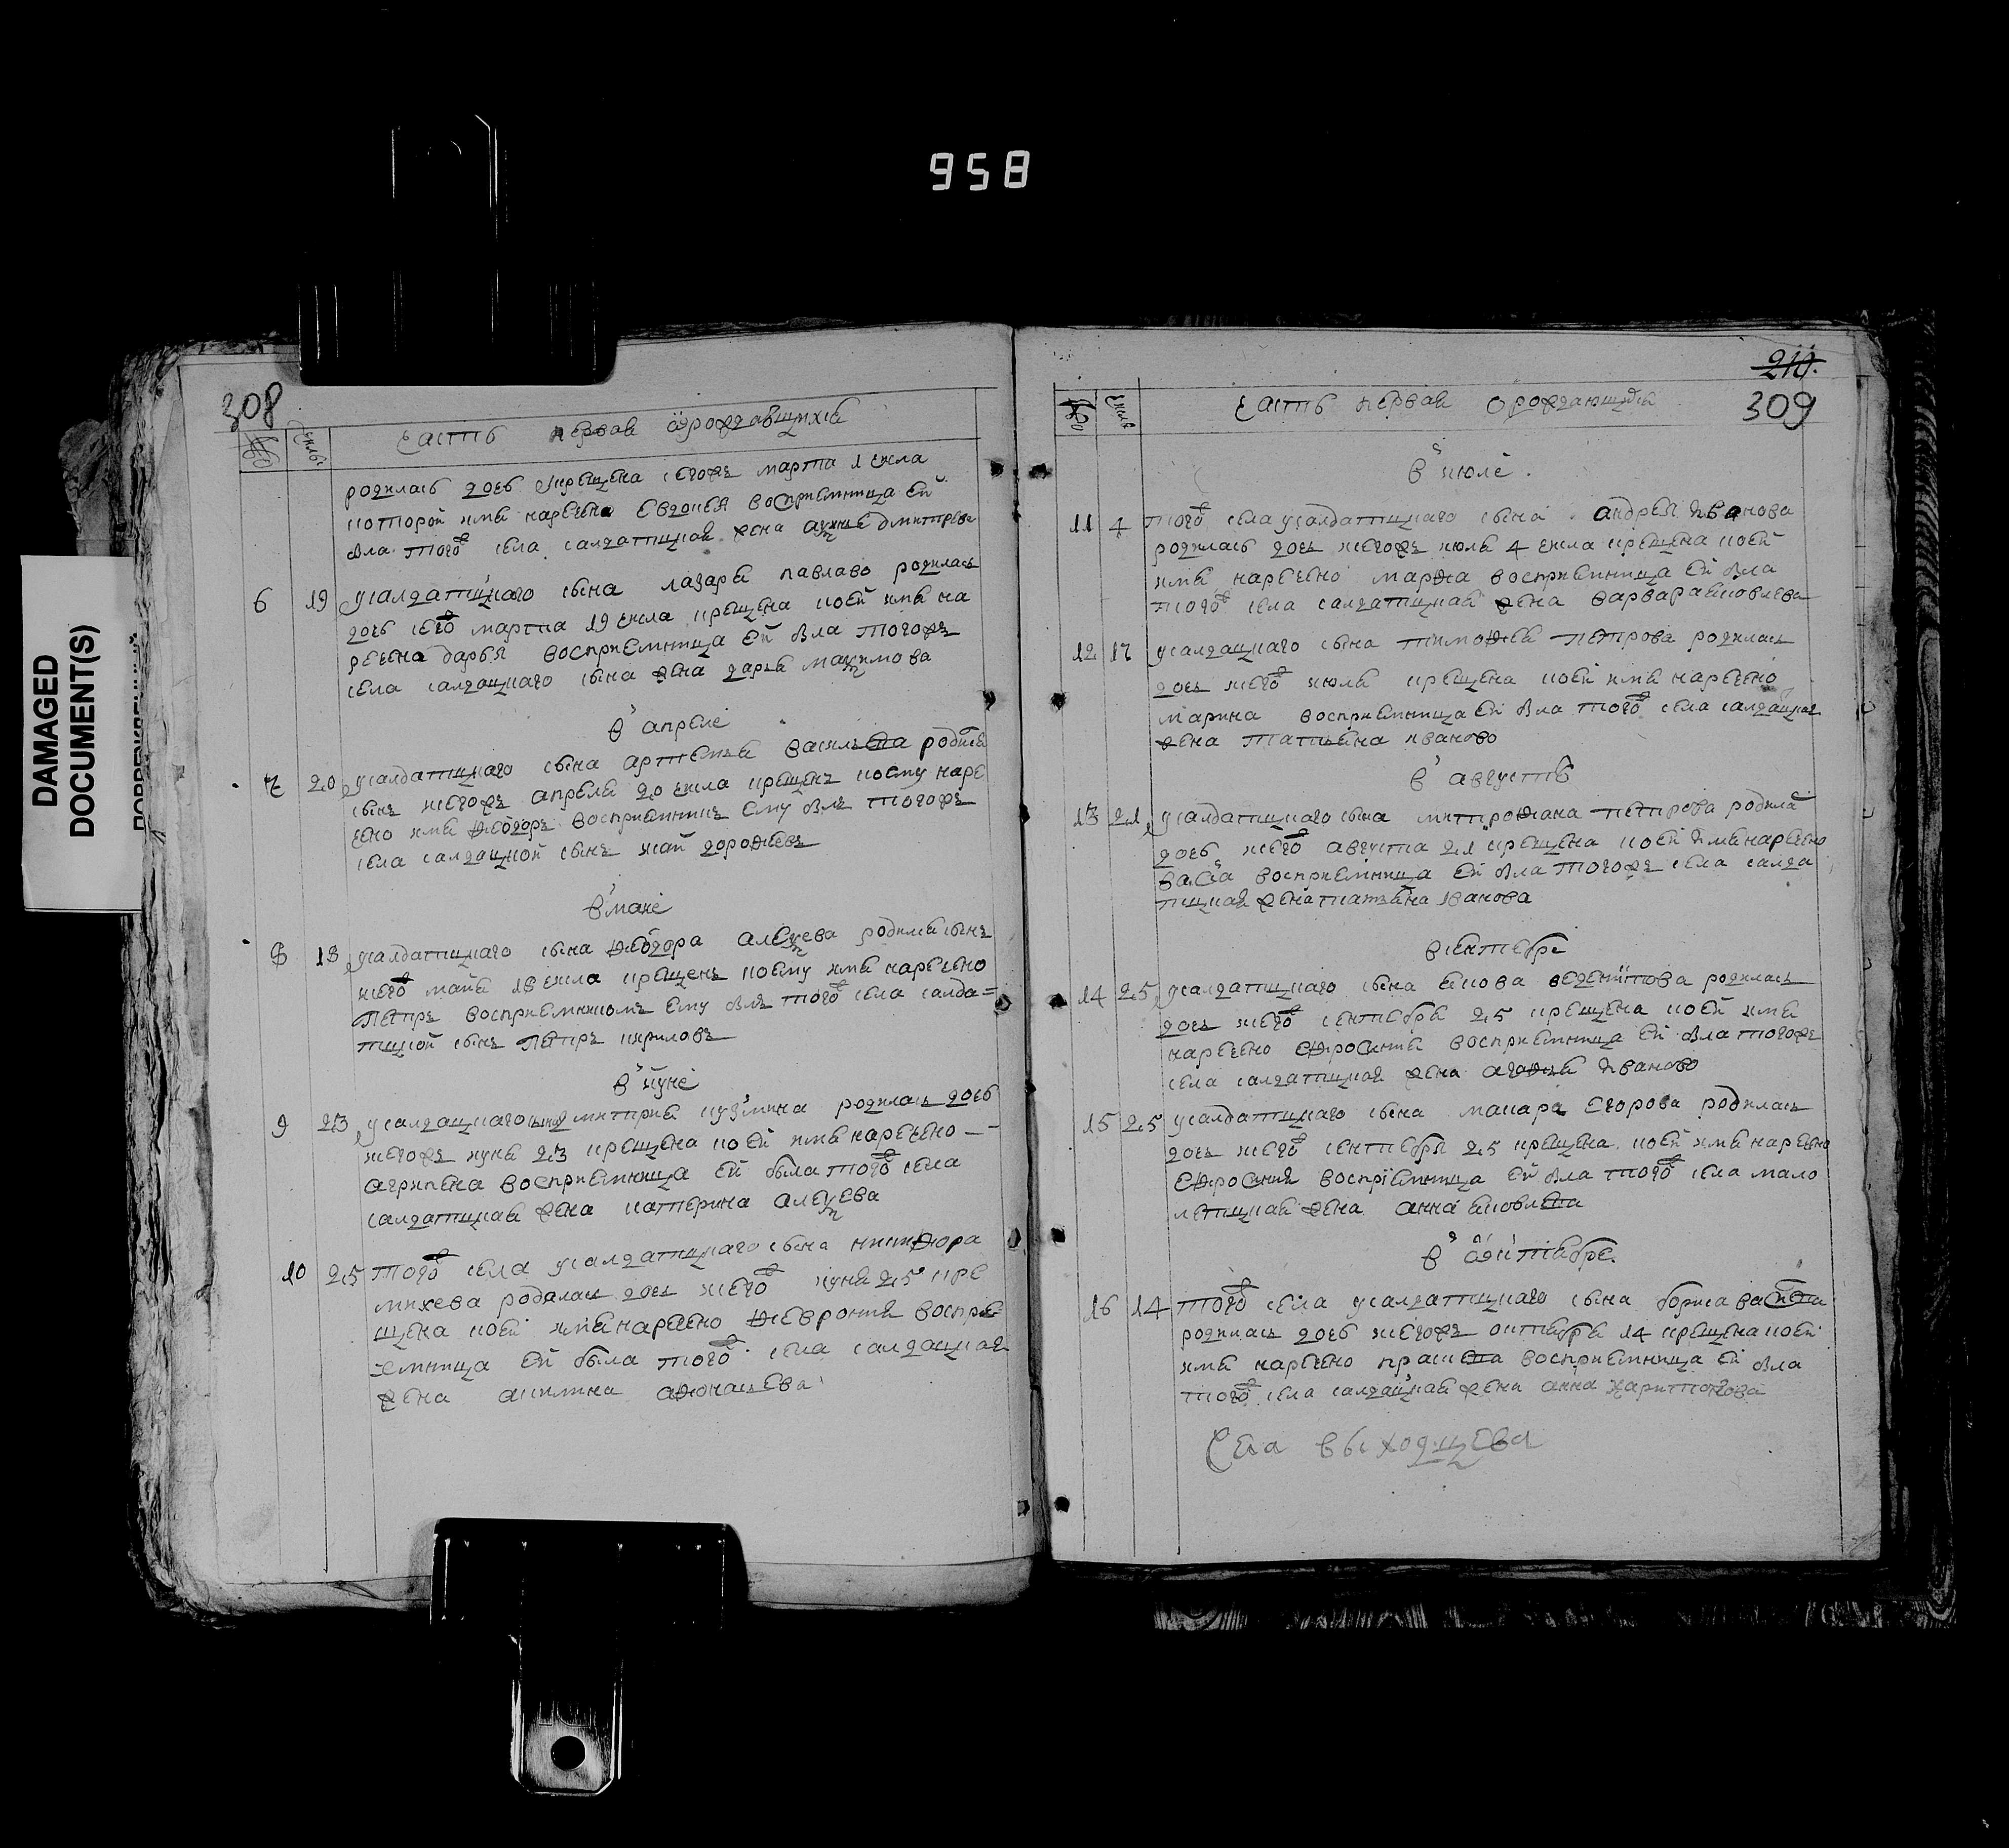 958
DAMAGED
DOCUMENT(S)
308
№
числы
часть первая ѿрождавшихся
родилась дочь укрещена сегожъ марта 1 числа
которой имя наречена Евдокья восприемница ей
бла того ж села салдатцкая жена дмитрева
6 19 усалдатцкаго сына лазаря павлаво родилась
дочь сего ж марта 19 числа крещена коей имя на
речена дарья восприемница ей бла тогожъ
села салдацкаго сына жена дарья максимова
в апреле
7 20 усалдатцкаго сына артемья васильева родился
сынъ сегожъ апреля 20 числа крещенъ коему наре
чено имя федоръ восприемникъ ему блъ тогожъ
села салдацкой сынъ дорофеевъ
в маие
8 18 усалдатцкаго сына федора алексева родился сынъ
сего ж майя 18 числа крещенъ коему имя наречено
Петръ восприемникомъ ему блъ того ж села салда=
тцкой сынъ Петръ кириловъ
в іуне
9 23 усалдацкаго сына дмитрия кузмина родилась дочь
сегожъ иуня 23 крещена коей имя наречено
агрипена восприемница ей была того ж села
салдатцкая жена катерина алексева
10 25 того ж села усалдатцкаго сына никифора
михева родилась дочь сего ж иуня 25 кре
щена коей имя наречено февронья восприе
емница ей была того ж села салдацкая
жена акилина афонасьева
210.
309
№
числа
часть первая о рождающихся
в июле
11 4 того ж села усалдатцкаго сына андрея Иванова
родилась дочь сегожъ июля 4 числа крещена коей
имя наречено марфа восприемница ей бла
того ж села салдатцкая жена варвара яковлева
12 17 усалдацкаго сына тимофея Петрова родилась
дочь сего ж июля крещена коей имя наречено
марина восприемница ей бла того ж села салдацкая
жена татьяна иваново
в августѣ
13 21 усалдатцкаго сына митрофана петрова родила
дочь сего ж августа 21 крещена коей имя наречено
васса восприемница ей бла тогожъ села салда
тцкая жена татьяна Іванова
в сентебре
14 25 усалдатцкаго сына якова ведениктова родилась
дочь сего ж сентебря 25 крещена коей имя
наречено ефросинья восприемница ей бла тогожъ
села салдатцкая жена агафья Иваново
15 25 усалдатцкаго сына макара Егорова родилась
дочь сего ж сентебря 25 крещена коей имя наречено
ефросиния воспріемница ей бла того ж села мало
летцкая жена анна яковлева
в ѿктябре.
16 14 того ж села усалдатцкаго сына бориса васильева
родилась дочь сегожъ октября 14 крещена коей
имя наречено прасковя восприемница ей бла
того ж села салдацкая жена анна харитонова
Села выходцева